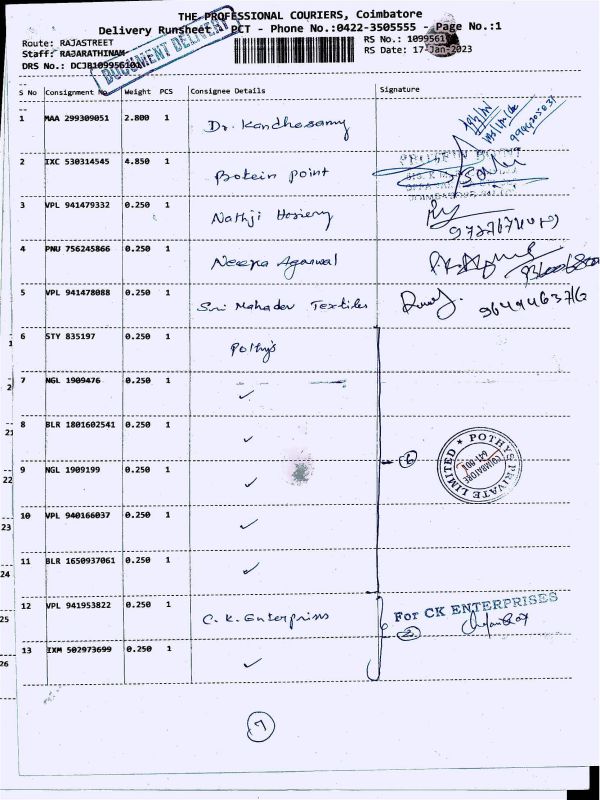 THE PROFESSIONAL COURIERS, Coimbatore
Delivery Runsheet PCT - Phone No.:0422-3505555 - Page No.:1
Route: RAJASTREET RS No.: 1099561
Staff: RAJARATHINAM RS Date: 17-Jan-2023
DRS No.: DCJB109956101
DOCUMENT DELIVERY
S No Consignment No Weight PCS Consignee Details Signature
1 MAA 299309051 2.800 1 Dr. Kandhasamy
2 IXC 530314545 4.850 1 Protein point
3 VPL 941479332 0.250 1 Nathji Hosiery
4 PNU 756245866 0.250 1 Neepa Agarwal
5 VPL 941478088 0.250 1 Sri Mahadev Textiles
6 STY 835197 0.250 1 Pothys
7 NGL 1909476 0.250 1 ✓
8 BLR 1801602541 0.250 1 ✓
9 NGL 1909199 0.250 1 ✓
6
POTHYS PRIVATE LIMITED
COIMBATORE
641 001
10 VPL 940166037 0.250 1 ✓
11 BLR 1650937061 0.250 1 ✓
12 VPL 941953822 0.250 1 C. K. Enterpriss For CK ENTERPRISES
2
13 IXM 502973699 0.250 1 ✓
7
21
22
23
24
25
26